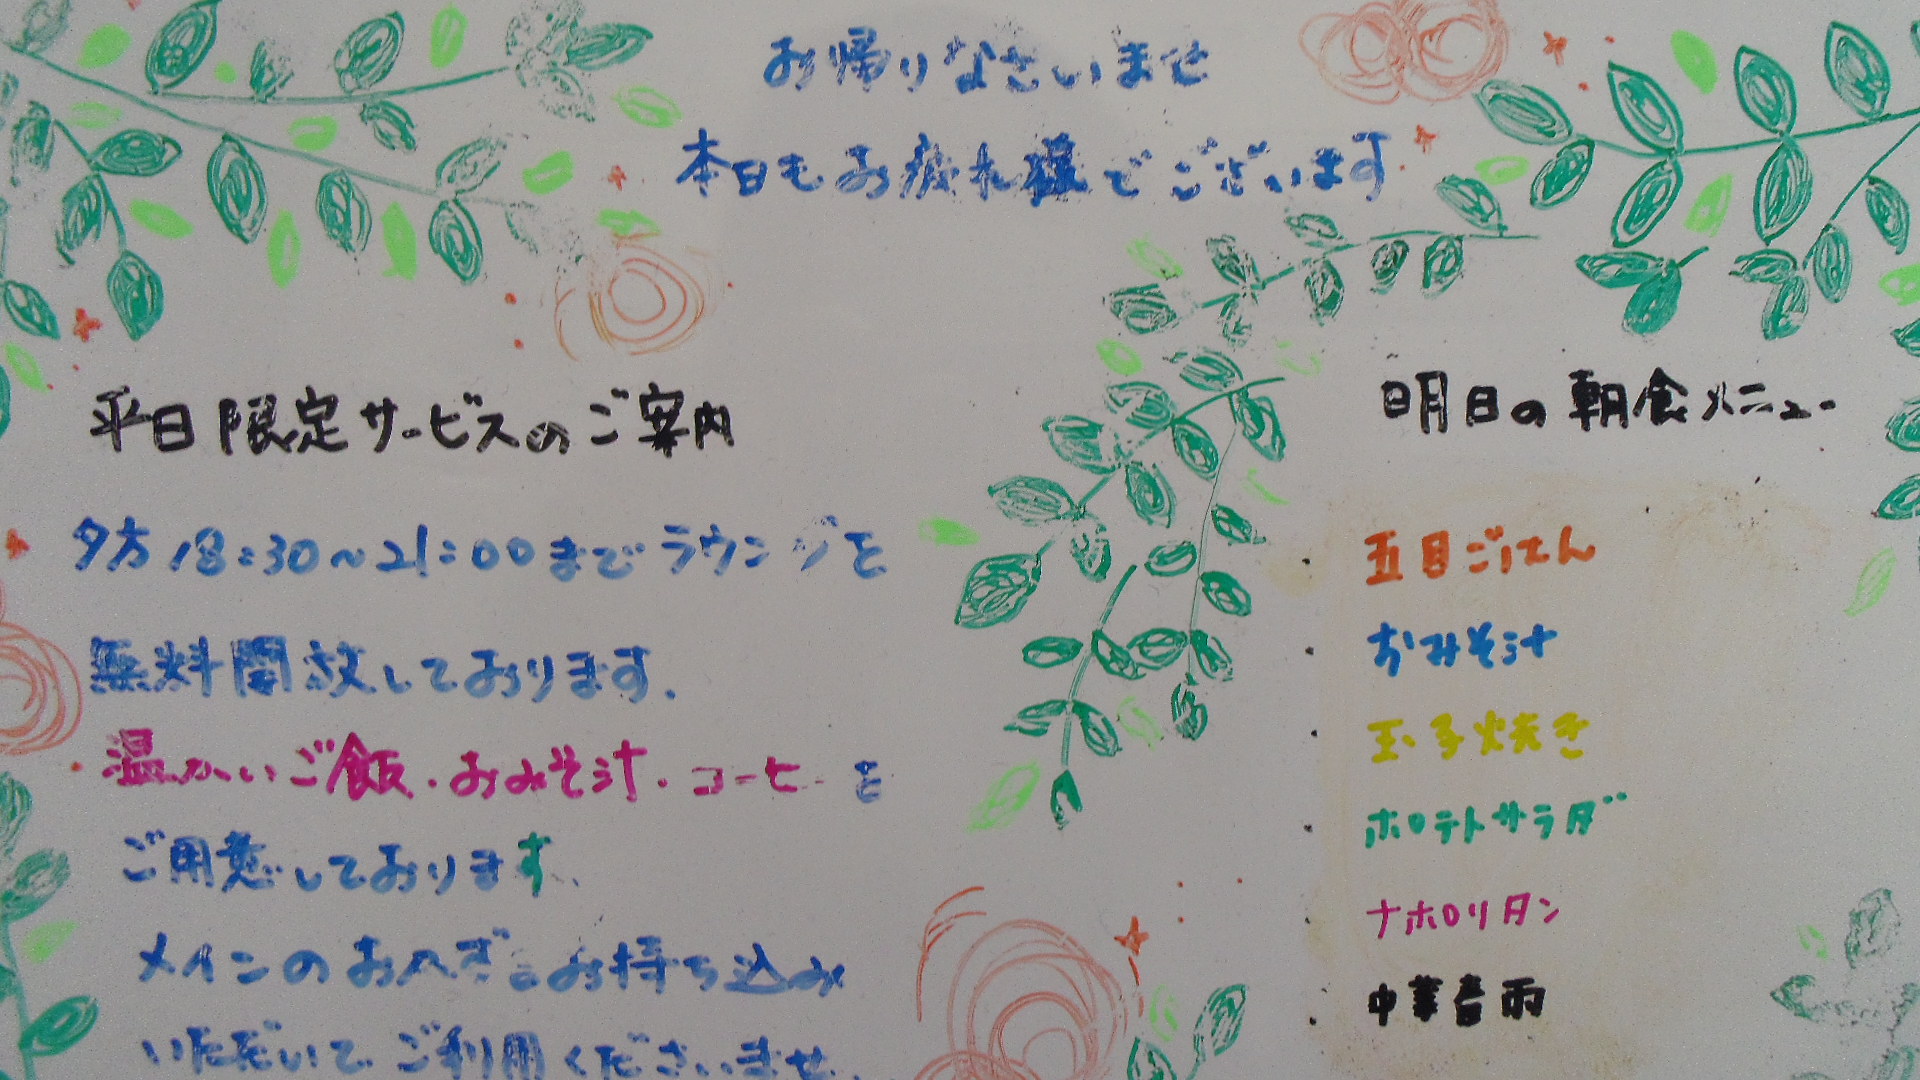 お帰りなさいませ
本日もお疲れ様でございます
平日限定サービスのご案内
夕方18:30〜21:00までラウンジを
無料開放しております.
温かいご飯・おみそ汁・コーヒーを
ご用意しております.
メインのおかずをお持ち込み
いただいてご利用くださいませ.
明日の朝食メニュー
・五目ごはん
・おみそ汁
・玉子焼き
・ポテトサラダ
・ナポリタン
・中華春雨